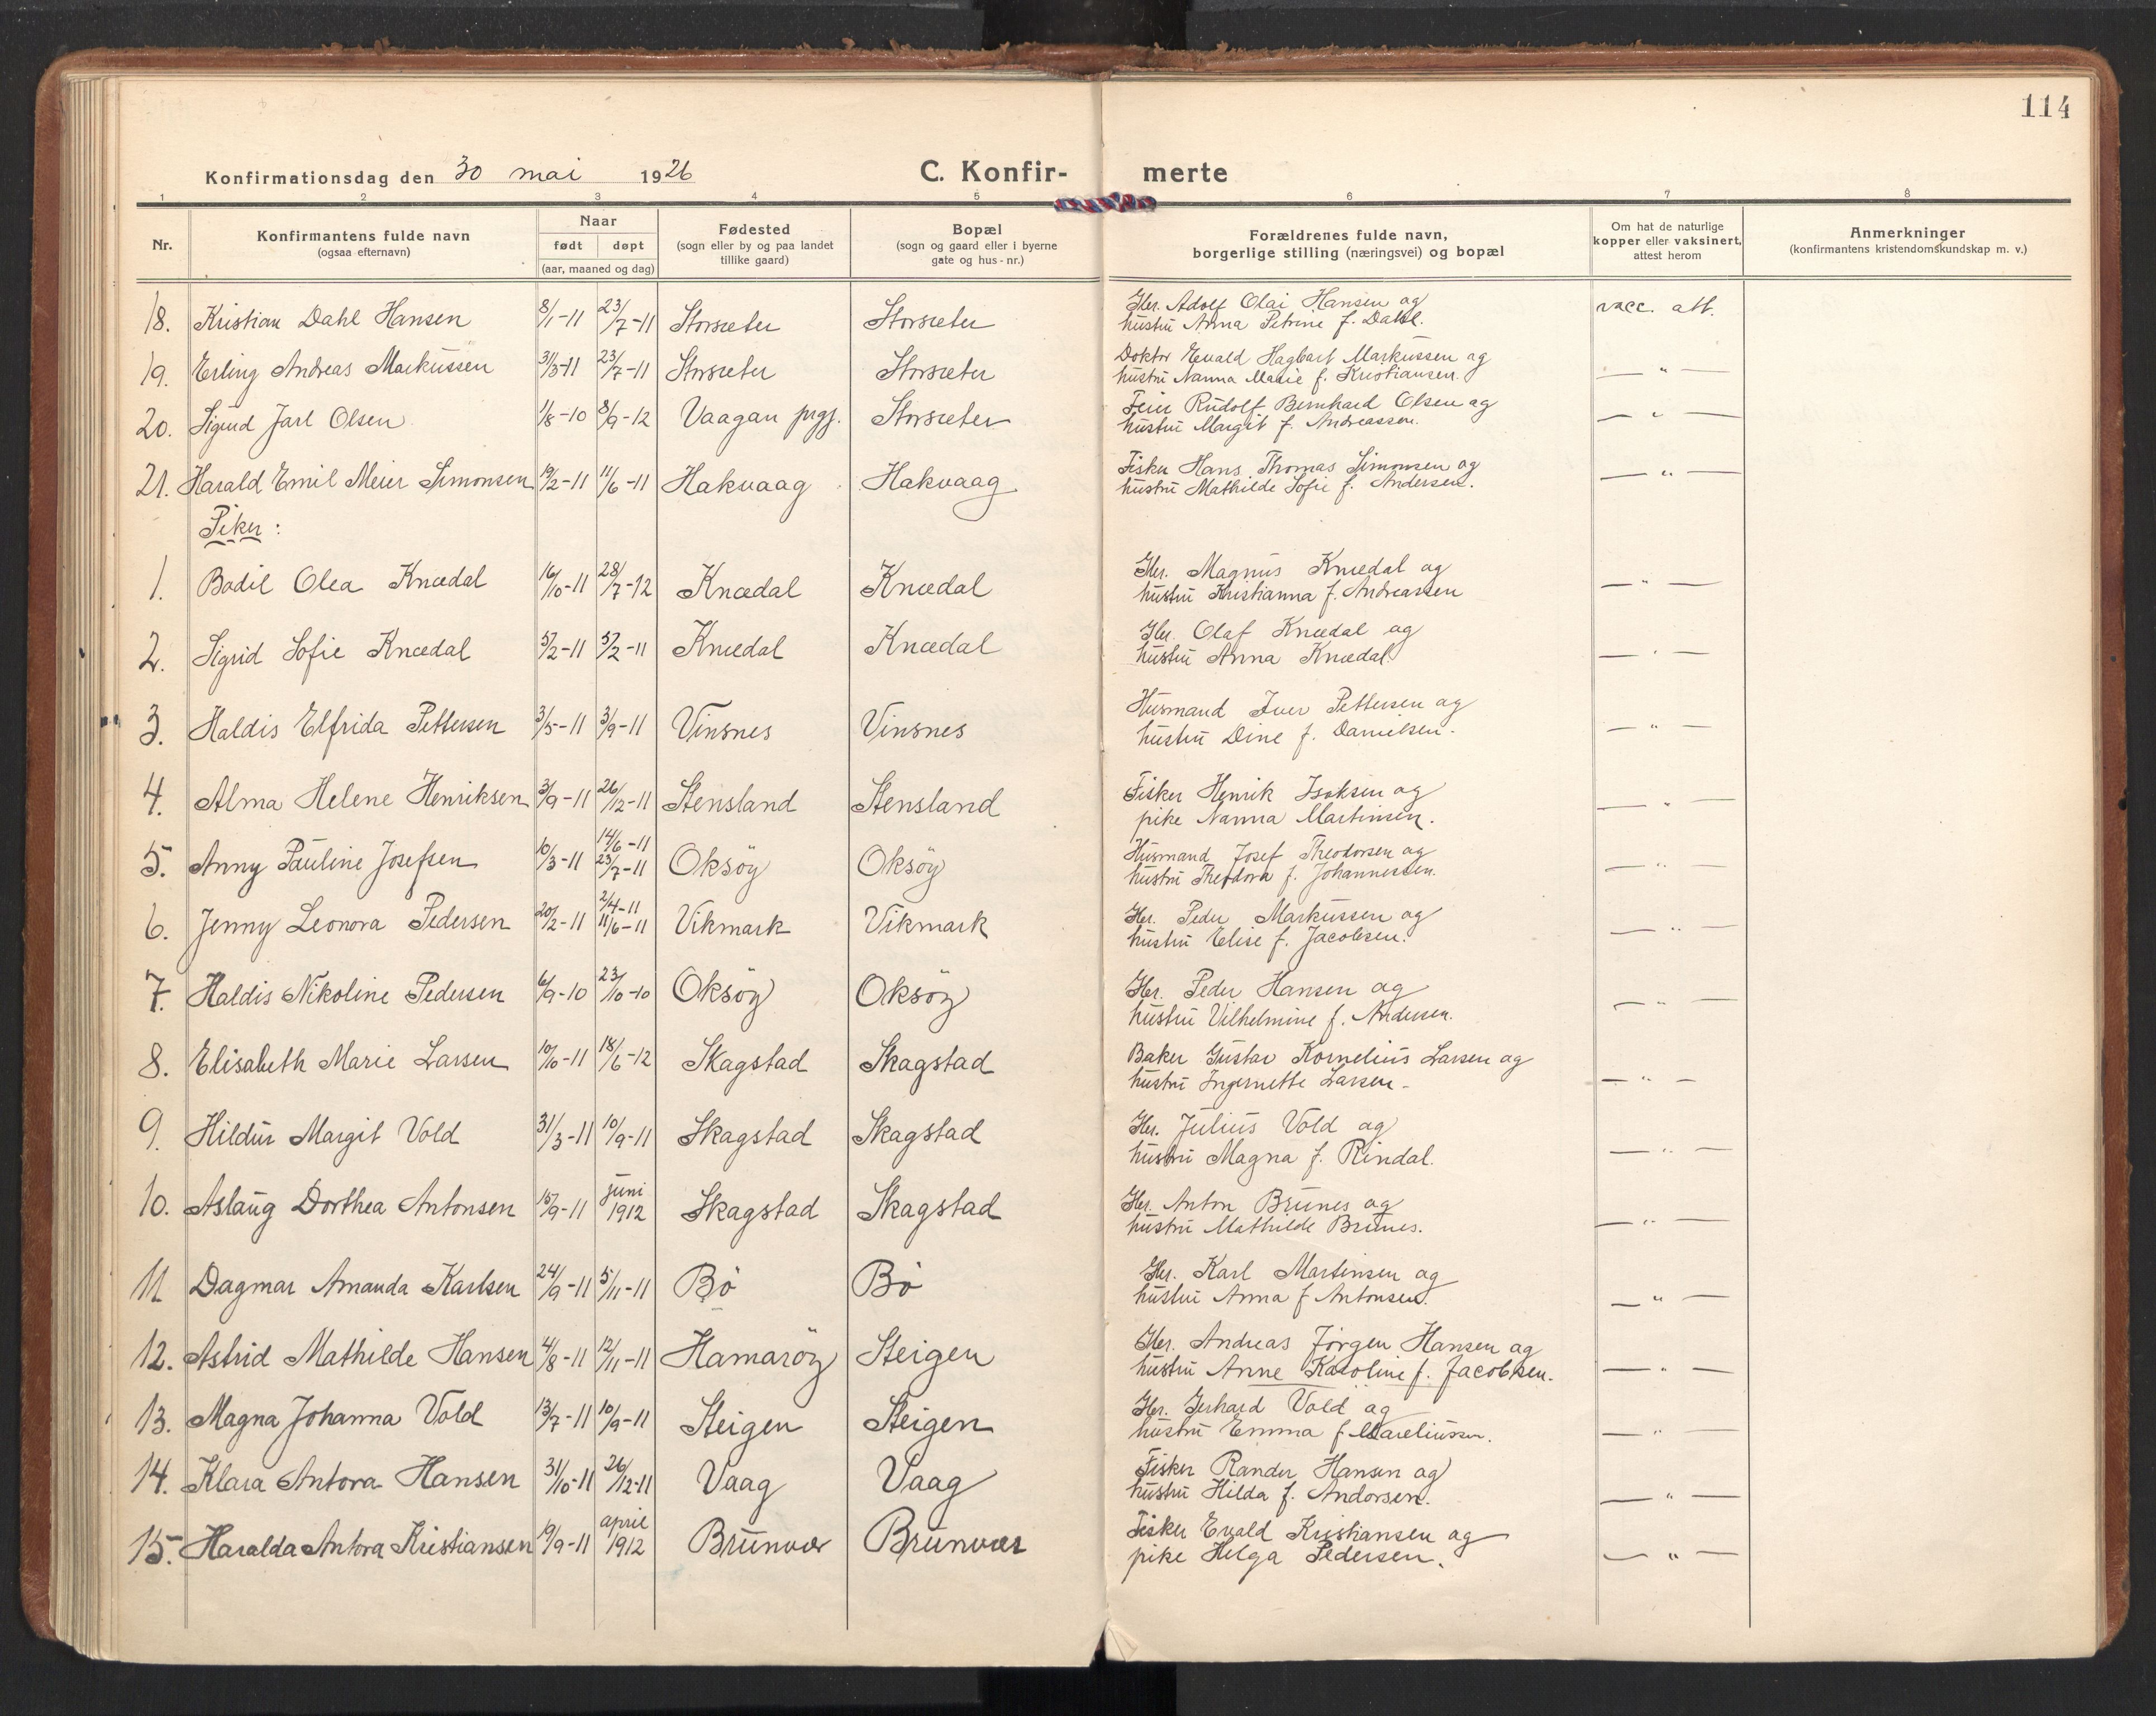 114
Konfirmationsdag den 30 mai 1926 C. Konfir- merte
1 2 3 4 5 6 7 8
Nr. Konfirmantens fulde navn (ogsaa efternavn) Naar født døpt (aar, maaned og dag) Fødested (sogn eller by og paa landet tillike gaard) Bopæl (sogn og gaard eller i byerne gate og hus-nr.) Forældrenes fulde navn, borgerlige stilling (næringsvei) og bopæl Om hat de naturlige kopper eller vaksinert, attest herom Anmerkninger (konfirmantens kristendomskundskap m. v.)
18. Kristian Dahl Hansen 8/1-11 23/7-11 Storsæter Storsæter Gbr. Adolf Olai Hansen og vacc. att.
hustru Anna Petrine f. Dahl.
19. Erling Andreas Markussen 31/3-11 23/7-11 Storsæter Storsæter Doktor Evald Hagbart Markussen og — " —
hustru Nanna Marie f. Kristiansen.
20. Sigurd Jarl Olsen 1/8-10 8/9-12 Vaagan prgj. Storsæter Feier Rudolf Bernhard Olsen og — " —
hustru Margit f. Andreassen.
21. Harald Emil Meier Simonsen 19/2-11 11/6-11 Hakvaag Hakvaag Fisker Hans Thomas Simonsen og — " —
hustru Mathilde Sofie f. Andersen.
Piker :
1. Bodil Olea Knædal 16/10-11 28/7-12 Knædal Knædal Gbr. Magnus Knædal og — " —
hustru Kristianna f. Andreassen
2. Sigrid Sofie Knædal 5/2-11 5/2-11 Knædal Knædal Gbr. Olaf Knædal og — " —
hustru Anna Knædal.
3. Haldis Elfrida Pettersen 3/5-11 3/9-11 Vinsnes Vinsnes Husmand Iver Pettersen og — " —
hustru Dine f. Danielsen.
4. Alma Helene Henriksen 3/9-11 26/12-11 Stensland Stensland Fisker Henrik Isaksen og — " —
pike Nanna Martinsen.
5. Anny Pauline Josefsen 10/3-11 14/6-11 23/7-11 Oksöy Oksöy Husmand Josef Theodorsen og — " —
hustru Theodora f. Johannessen.
6. Jenny Leonora Pedersen 20/2-11 2/4-11 11/6-11 Vikmark Vikmark Gbr. Peder Markussen og — " —
hustru Elise f. Jacobsen.
7. Haldis Nikoline Pedersen 6/9-10 23/10-10 Oksöy Oksöy Gbr. Peder Hansen og — " —
hustru Vilhelmine f. Andersen.
8. Elisabeth Marie Larsen 10/10-11 18/6-12 Skagstad Skagstad Baker Gustav Kornelius Larsen og — " —
hustru Ingernette Larsen -
9. Hildur Margit Vold 31/3-11 10/9-11 Skagstad Skagstad Gbr. Julius Vold og — " —
hustru Magna f. Rindal.
10. Aslaug Dorthea Antonsen 15/9-11 juni 1912 Skagstad Skagstad Gbr. Anton Brunes og — " —
hustru Mathilde Brunes.
11. Dagmar Amanda Karlsen 24/9-11 5/11-11 Bö Bö Gbr. Karl Martinsen og — " —
hustru Anna f Antonsen.
12. Astrid Mathilde Hansen 4/8-11 12/11-11 Hamaröy Steigen Gbr. Andreas Jörgen Hansen og — " —
hustru Anne Karoline f. Jacobsen.
13. Magna Johanna Vold 13/7-11 10/9-11 Steigen Steigen Gbr. Gerhard Vold og — " —
hustru Emma f Mareliussen.
14. Klara Antora Hansen 31/10-11 26/12-11 Vaag Vaag Fisker Rander Hansen og — " —
hustru Hilda f. Andorsen.
15. Haralda Antora Kristiansen 19/9-11 april 1912 Brunvær Brunvær Fisker Evald Kristiansen og — " —
pike Helga Pedersen.